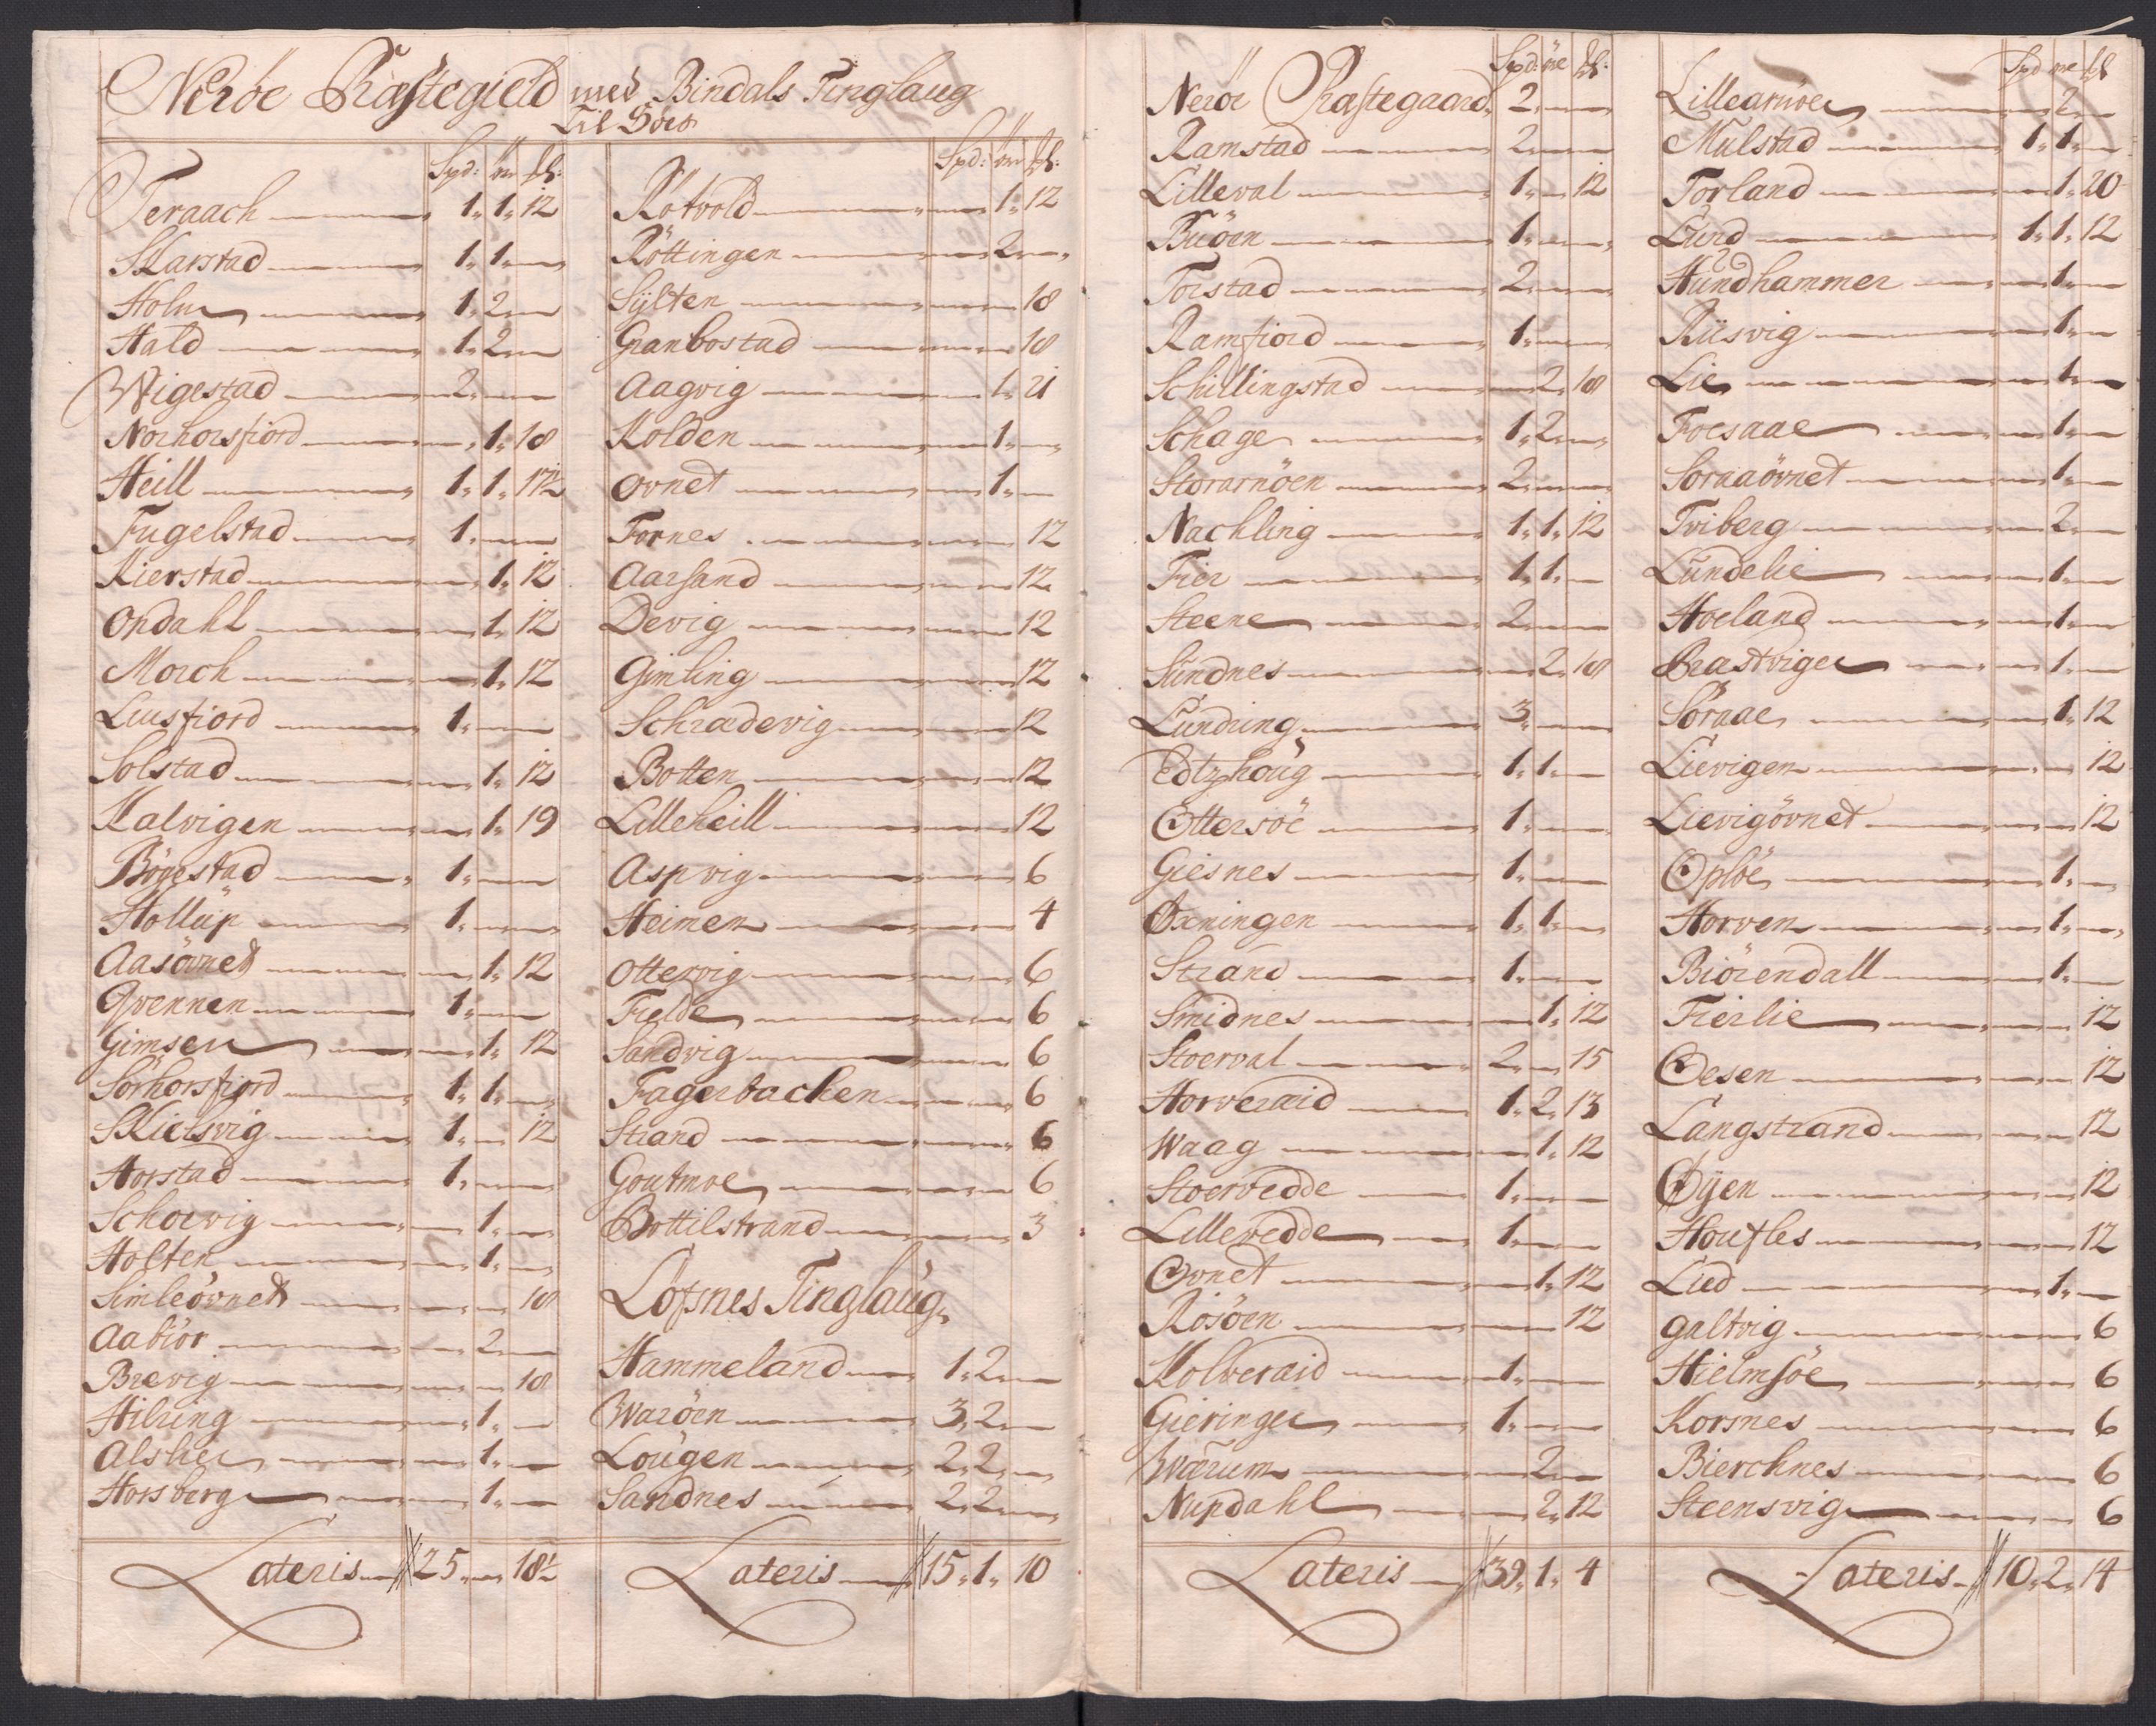 Neröe Præstegield med Bindals Tinglaug
Til Söes
Spd: ort ſk:
Teraach 1. 1. 12
Skarstad 1. 1.
Holm 1. 2.
Hald 1. 2.
Wigestad 2.
Norhorsfiord 1. 18
Heill 1. 1. 17½
Fugelstad 1.
Kierstad 1. 12
Opdahl 1. 12
Morch 1. 12
Liusfiord 1.
Solstad 1. 12
Kalvigen 1. 19
Bögestad 1.
Hollup 1.
Aasövned 1. 12
Qvennen 1.
Gimsen 1. 12
Sörhorsfiord 1. 1.
Skielsvig 1. 12
Horstad 1.
Schoevig 1.
Holten 1.
Simleövned 18
Aabiör 2.
Brevig 18
Hilring 1.
Alslien 1.
Horsberg 1.
Lateris 25. 18½
Spd: ort ſk:
Kötvold 1. 12
Röttingen 2.
Sÿlten 18
Granbostad 18
Aagvig 1. 21
Kolden 1.
Ovnet 1.
Fornes 12
Aarsand 12
Devig 12
Gimling 12
Schradevig 12
Botten 12
Lilleheill 12
Aspvig 6
Heimen 4
Ottervig 6
Fielde 6
Sandvig 6
Fagerbachen 6
Strand 6
Goutmoe 6
Bottilstrand 3
Löfsnes Tinglaug
Hammeland 1. 2.
Waröen 3. 2.
Lougen 2. 2.
Sandnes 2. 2.
Lateris 15. 1. 10
Spd: ort ſk:
Neröe Præstegaard 2.
Ramstad 2.
Lilleval 1. 12
Buöen 1.
Torstad 2.
Ramfiord 1.
Schillingstad 2. 18
Schage 1. 2.
Storarnöen 2.
Nachling 1. 1. 12
Fier 1. 1.
Steene 2.
Sundnes 2. 18
Lundring 3.
Edtzhoug 1. 1.
Ottersöe 1.
Giesnes 1.
Öxningen 1. 1.
Strand 1.
Smidnes 1. 12
Stoerval 2. 15
Horveraid 1. 2. 13
Waag 1. 12
Stoervedde 1.
Lillevedde 1.
Ovnet 1. 12
Rosöen 12
Kolveraid 1.
Gieringen 1.
Wærum 2.
Nupdahl 2. 12
Lateris 39. 1. 4
Spd ort ſk
Lillearnöen 2.
Mulstad 1. 1.
Torland 1. 20
Lund 1. 1. 12
Hundhammer 1.
Riisvig 1.
Lie 1.
Foesaae 1.
Soraaövnet 1.
Tviberg 2.
Lundelie 1.
Hoeland 1.
Præstvigen 1.
Soraae 1. 12
Lievigen 12
Lievigövnet 12
Oplöe 1.
Horven 1.
Biörendall 1.
Fierlie 12
Oesen 12
Langstrand 12
Öÿen 12
Houfles 12
Lied 1.
Galtvig 6
Hielmsöe 6
Korsnes 6
Bierchnes 6
Steensvig 6
Lateris 10. 2. 14